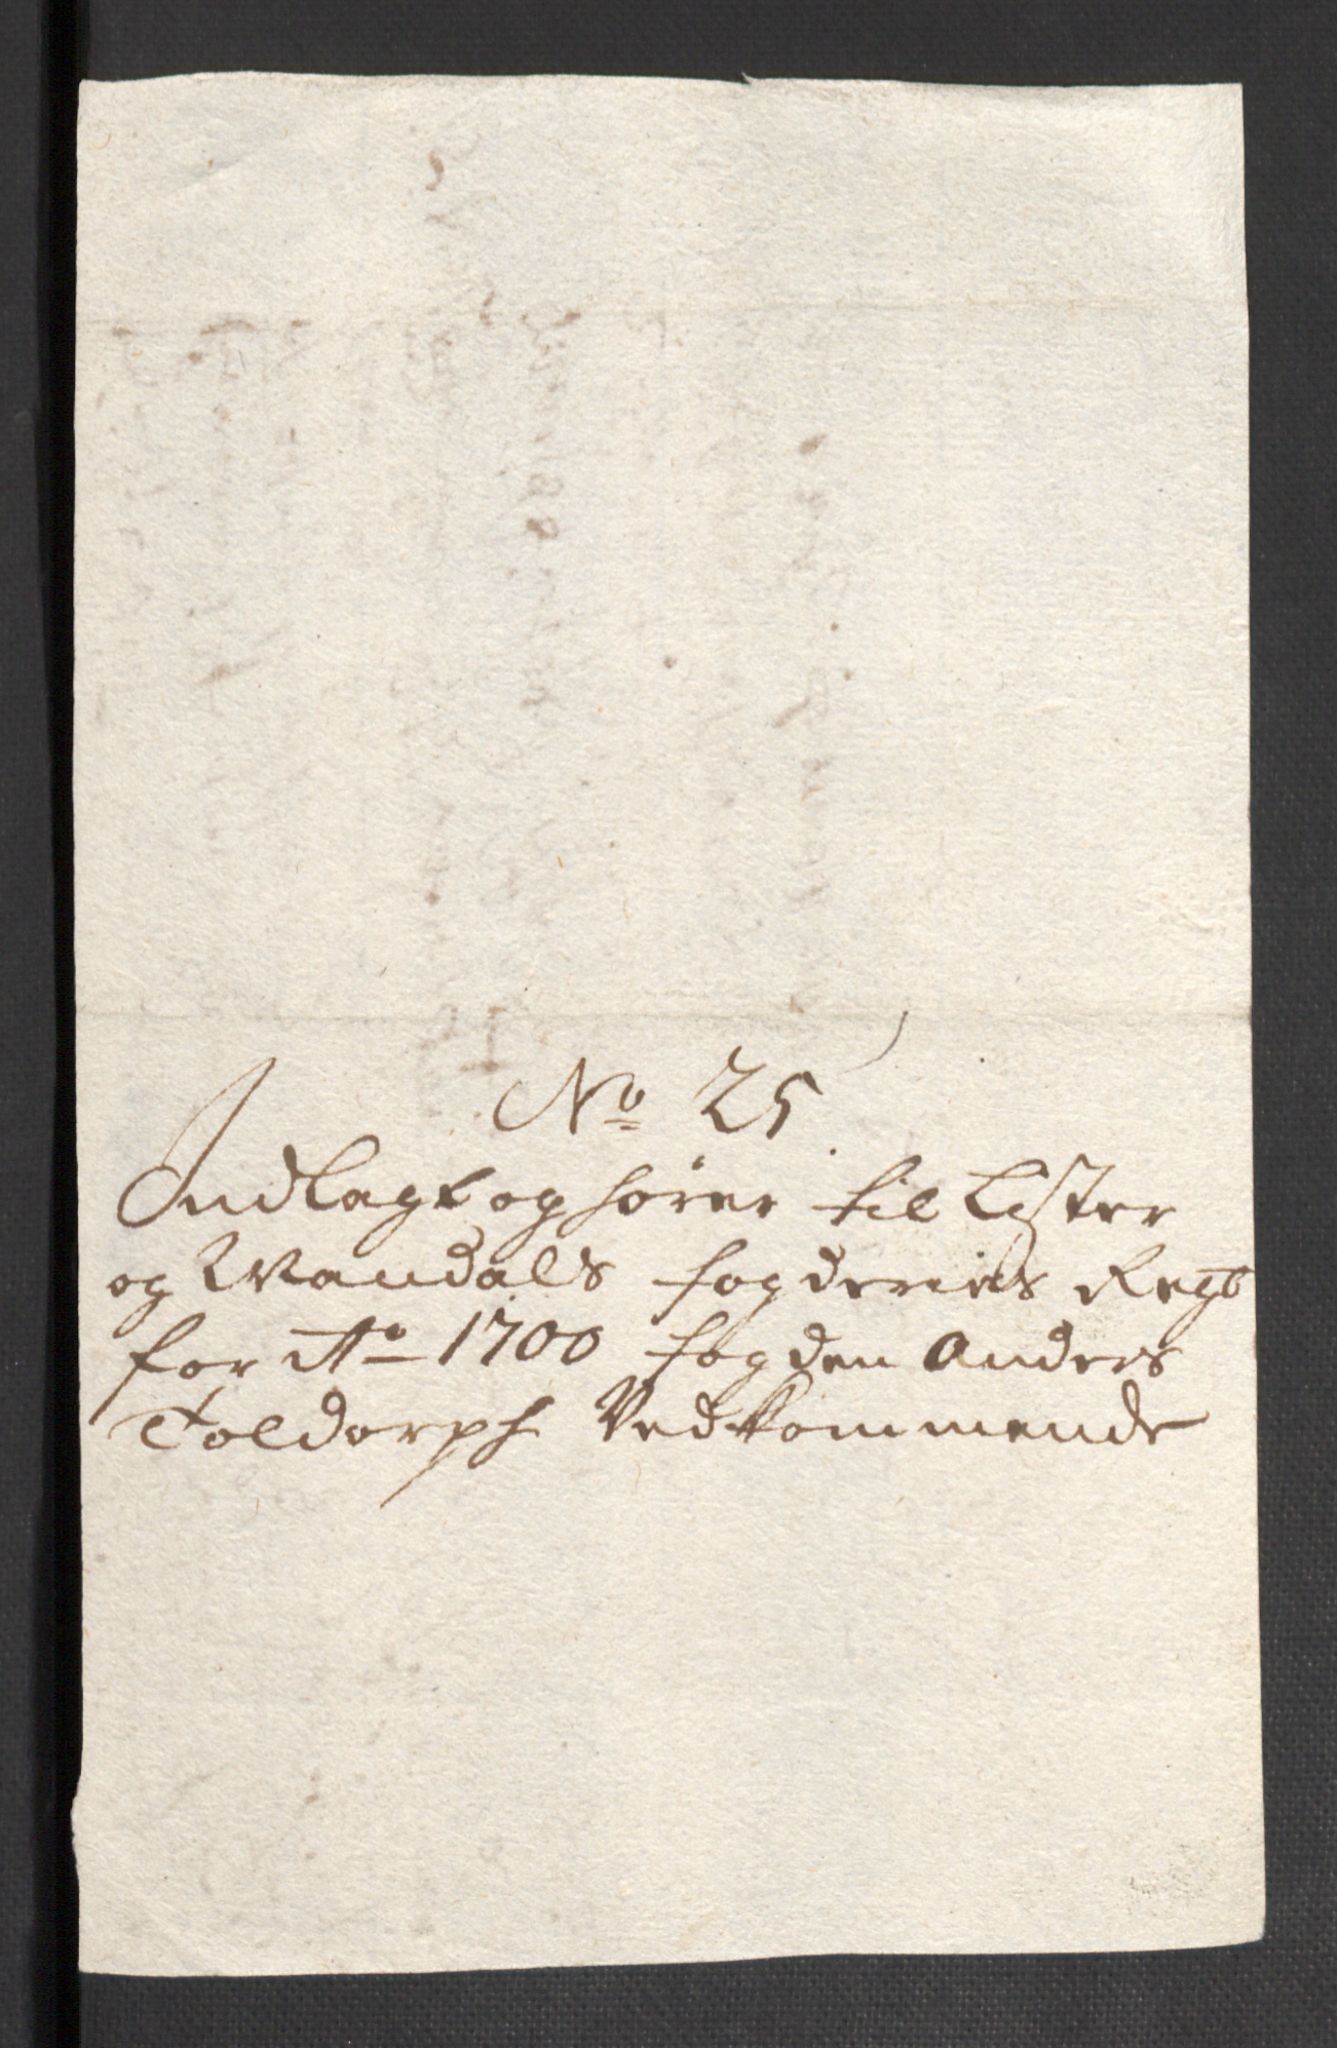 No 25
Indlagt og hører til Lister
og Mandals fogderies Regb
for Ao 1700 fogden Anders
Toldorph Vedkommende